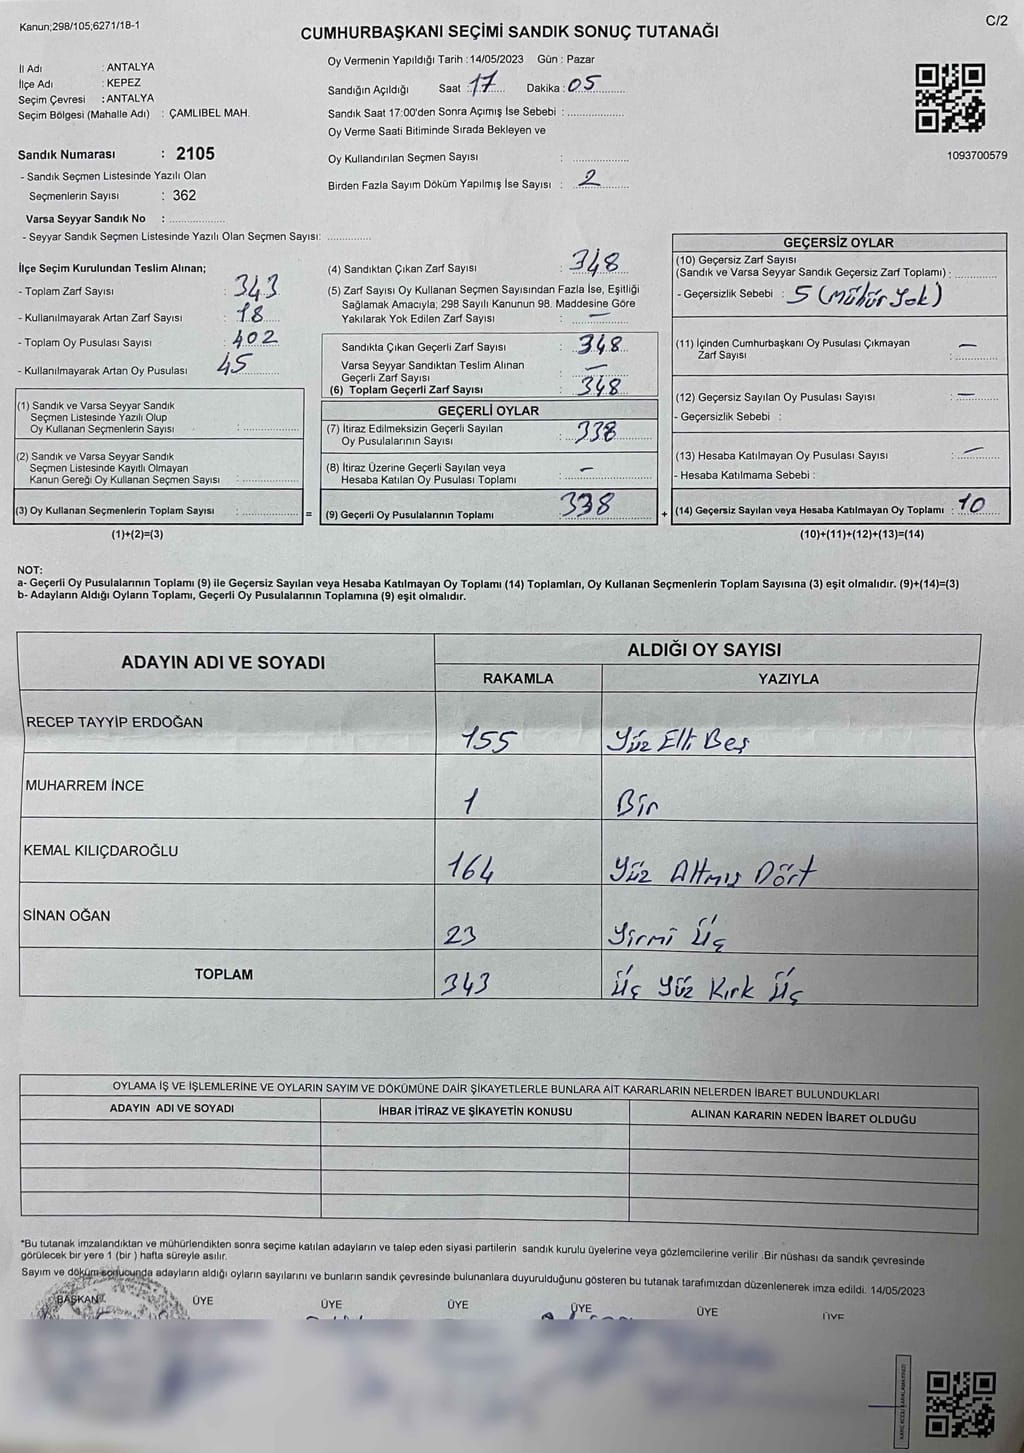 Kanun;298/105;6271/18-1
C/2
CUMHURBAŞKANI SEÇİMİ SANDIK SONUÇ TUTANAĞI
İl Adı : ANTALYA
İlçe Adı : KEPEZ
Seçim Çevresi : ANTALYA
Seçim Bölgesi (Mahalle Adı) : ÇAMLIBEL MAH.
Sandık Numarası : 2105
- Sandık Seçmen Listesinde Yazılı Olan
Seçmenlerin Sayısı : 362
Varsa Seyyar Sandık No : ..................
- Seyyar Sandık Seçmen Listesinde Yazılı Olan Seçmen Sayısı: ..............
Oy Vermenin Yapıldığı Tarih : 14/05/2023 Gün : Pazar
Sandığın Açıldığı Saat : 17 Dakika : 05
Sandık Saat 17:00'den Sonra Açımış İse Sebebi : ..................
Oy Verme Saati Bitiminde Sırada Bekleyen ve
Oy Kullandırılan Seçmen Sayısı : ..................
Birden Fazla Sayım Döküm Yapılmış İse Sayısı : 2
1093700579
İlçe Seçim Kurulundan Teslim Alınan;
- Toplam Zarf Sayısı : 343
- Kullanılmayarak Artan Zarf Sayısı : 18
- Toplam Oy Pusulası Sayısı : 402
- Kullanılmayarak Artan Oy Pusulası 45
(1) Sandık ve Varsa Seyyar Sandık
Seçmen Listesinde Yazılı Olup
Oy Kullanan Seçmenlerin Sayısı : ..................
(2) Sandık ve Varsa Seyyar Sandık
Seçmen Listesinde Kayıtlı Olmayan
Kanun Gereği Oy Kullanan Seçmen Sayısı : ..................
(3) Oy Kullanan Seçmenlerin Toplam Sayısı : .................. =
(1)+(2)=(3)
(4) Sandıktan Çıkan Zarf Sayısı : 348
(5) Zarf Sayısı Oy Kullanan Seçmen Sayısından Fazla İse, Eşitliği
Sağlamak Amacıyla, 298 Sayılı Kanunun 98. Maddesine Göre
Yakılarak Yok Edilen Zarf Sayısı : —
Sandıkta Çıkan Geçerli Zarf Sayısı : 348
Varsa Seyyar Sandıktan Teslim Alınan
Geçerli Zarf Sayısı : —
(6) Toplam Geçerli Zarf Sayısı : 348
GEÇERLİ OYLAR
(7) İtiraz Edilmeksizin Geçerli Sayılan
Oy Pusulalarının Sayısı : 338
(8) İtiraz Üzerine Geçerli Sayılan veya
Hesaba Katılan Oy Pusulası Toplamı : —
(9) Geçerli Oy Pusulalarının Toplamı 338 +
GEÇERSİZ OYLAR
(10) Geçersiz Zarf Sayısı
(Sandık ve Varsa Seyyar Sandık Geçersiz Zarf Toplamı) : ............
- Geçersizlik Sebebi : 5 (Mühür Yok)
(11) İçinden Cumhurbaşkanı Oy Pusulası Çıkmayan
Zarf Sayısı : —
(12) Geçersiz Sayılan Oy Pusulası Sayısı : —
- Geçersizlik Sebebi :
(13) Hesaba Katılmayan Oy Pusulası Sayısı : —
- Hesaba Katılmama Sebebi :
(14) Geçersiz Sayılan veya Hesaba Katılmayan Oy Toplamı : 10
(10)+(11)+(12)+(13)=(14)
NOT:
a- Geçerli Oy Pusulalarının Toplamı (9) ile Geçersiz Sayılan veya Hesaba Katılmayan Oy Toplamı (14) Toplamları, Oy Kullanan Seçmenlerin Toplam Sayısına (3) eşit olmalıdır. (9)+(14)=(3)
b- Adayların Aldığı Oyların Toplamı, Geçerli Oy Pusulalarının Toplamına (9) eşit olmalıdır.
ADAYIN ADI VE SOYADI ALDIĞI OY SAYISI
RAKAMLA YAZIYLA
RECEP TAYYİP ERDOĞAN 155 Yüz Elli Beş
MUHARREM İNCE 1 Bir
KEMAL KILIÇDAROĞLU 164 Yüz Altmış Dört
SİNAN OĞAN 23 Yirmi Üç
TOPLAM 343 Üç Yüz Kırk Üç
OYLAMA İŞ VE İŞLEMLERİNE VE OYLARIN SAYIM VE DÖKÜMÜNE DAİR ŞİKAYETLERLE BUNLARA AİT KARARLARIN NELERDEN İBARET BULUNDUKLARI
ADAYIN ADI VE SOYADI İHBAR İTİRAZ VE ŞİKAYETİN KONUSU ALINAN KARARIN NEDEN İBARET OLDUĞU
*Bu tutanak imzalandıktan ve mühürlendikten sonra seçime katılan adayların ve talep eden siyasi partilerin sandık kurulu üyelerine veya gözlemcilerine verilir .Bir nüshası da sandık çevresinde
görülecek bir yere 1 (bir ) hafta süreyle asılır.
Sayım ve döküm sonucunda adayların aldığı oyların sayılarını ve bunların sandık çevresinde bulunanlara duyurulduğunu gösteren bu tutanak tarafımızdan düzenlenerek imza edildi. 14/05/2023
BAŞKAN ÜYE ÜYE ÜYE ÜYE ÜYE ÜYE